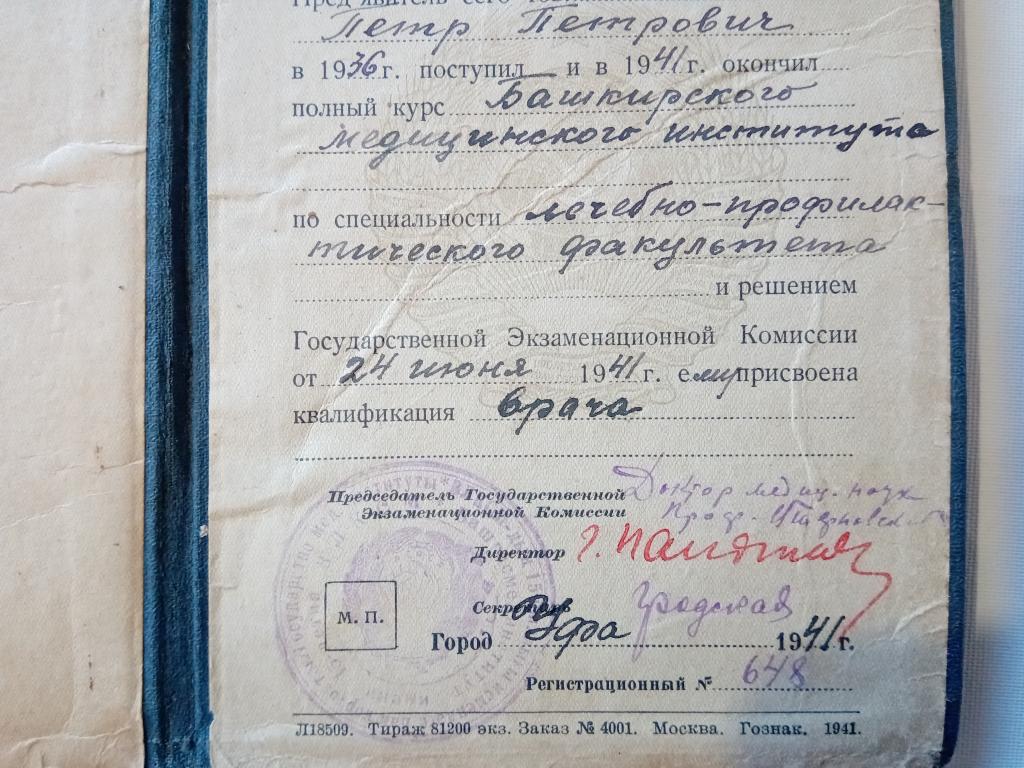 Петр Петрович
в 1936 г. поступил и в 1941 г. окончил
полный курс Башкирского
медицинского института
по специальности лечебно-профилак-
тического факультета
и решением
Государственной Экзаменационной Комиссии
от 24 июня 1941 г. ему присвоена
квалификация врача
Председатель Государственной
Экзаменационной Комиссии
Доктор медиц. наук
Проф.
Директор
Секретарь
М. П.
Город Уфа 1941 г.
Регистрационный № 648
Л18509. Тираж 81200 экз. Заказ № 4001. Москва. Гознак. 1941.